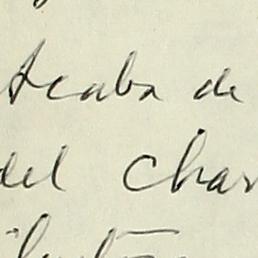 Acaba de
del Char